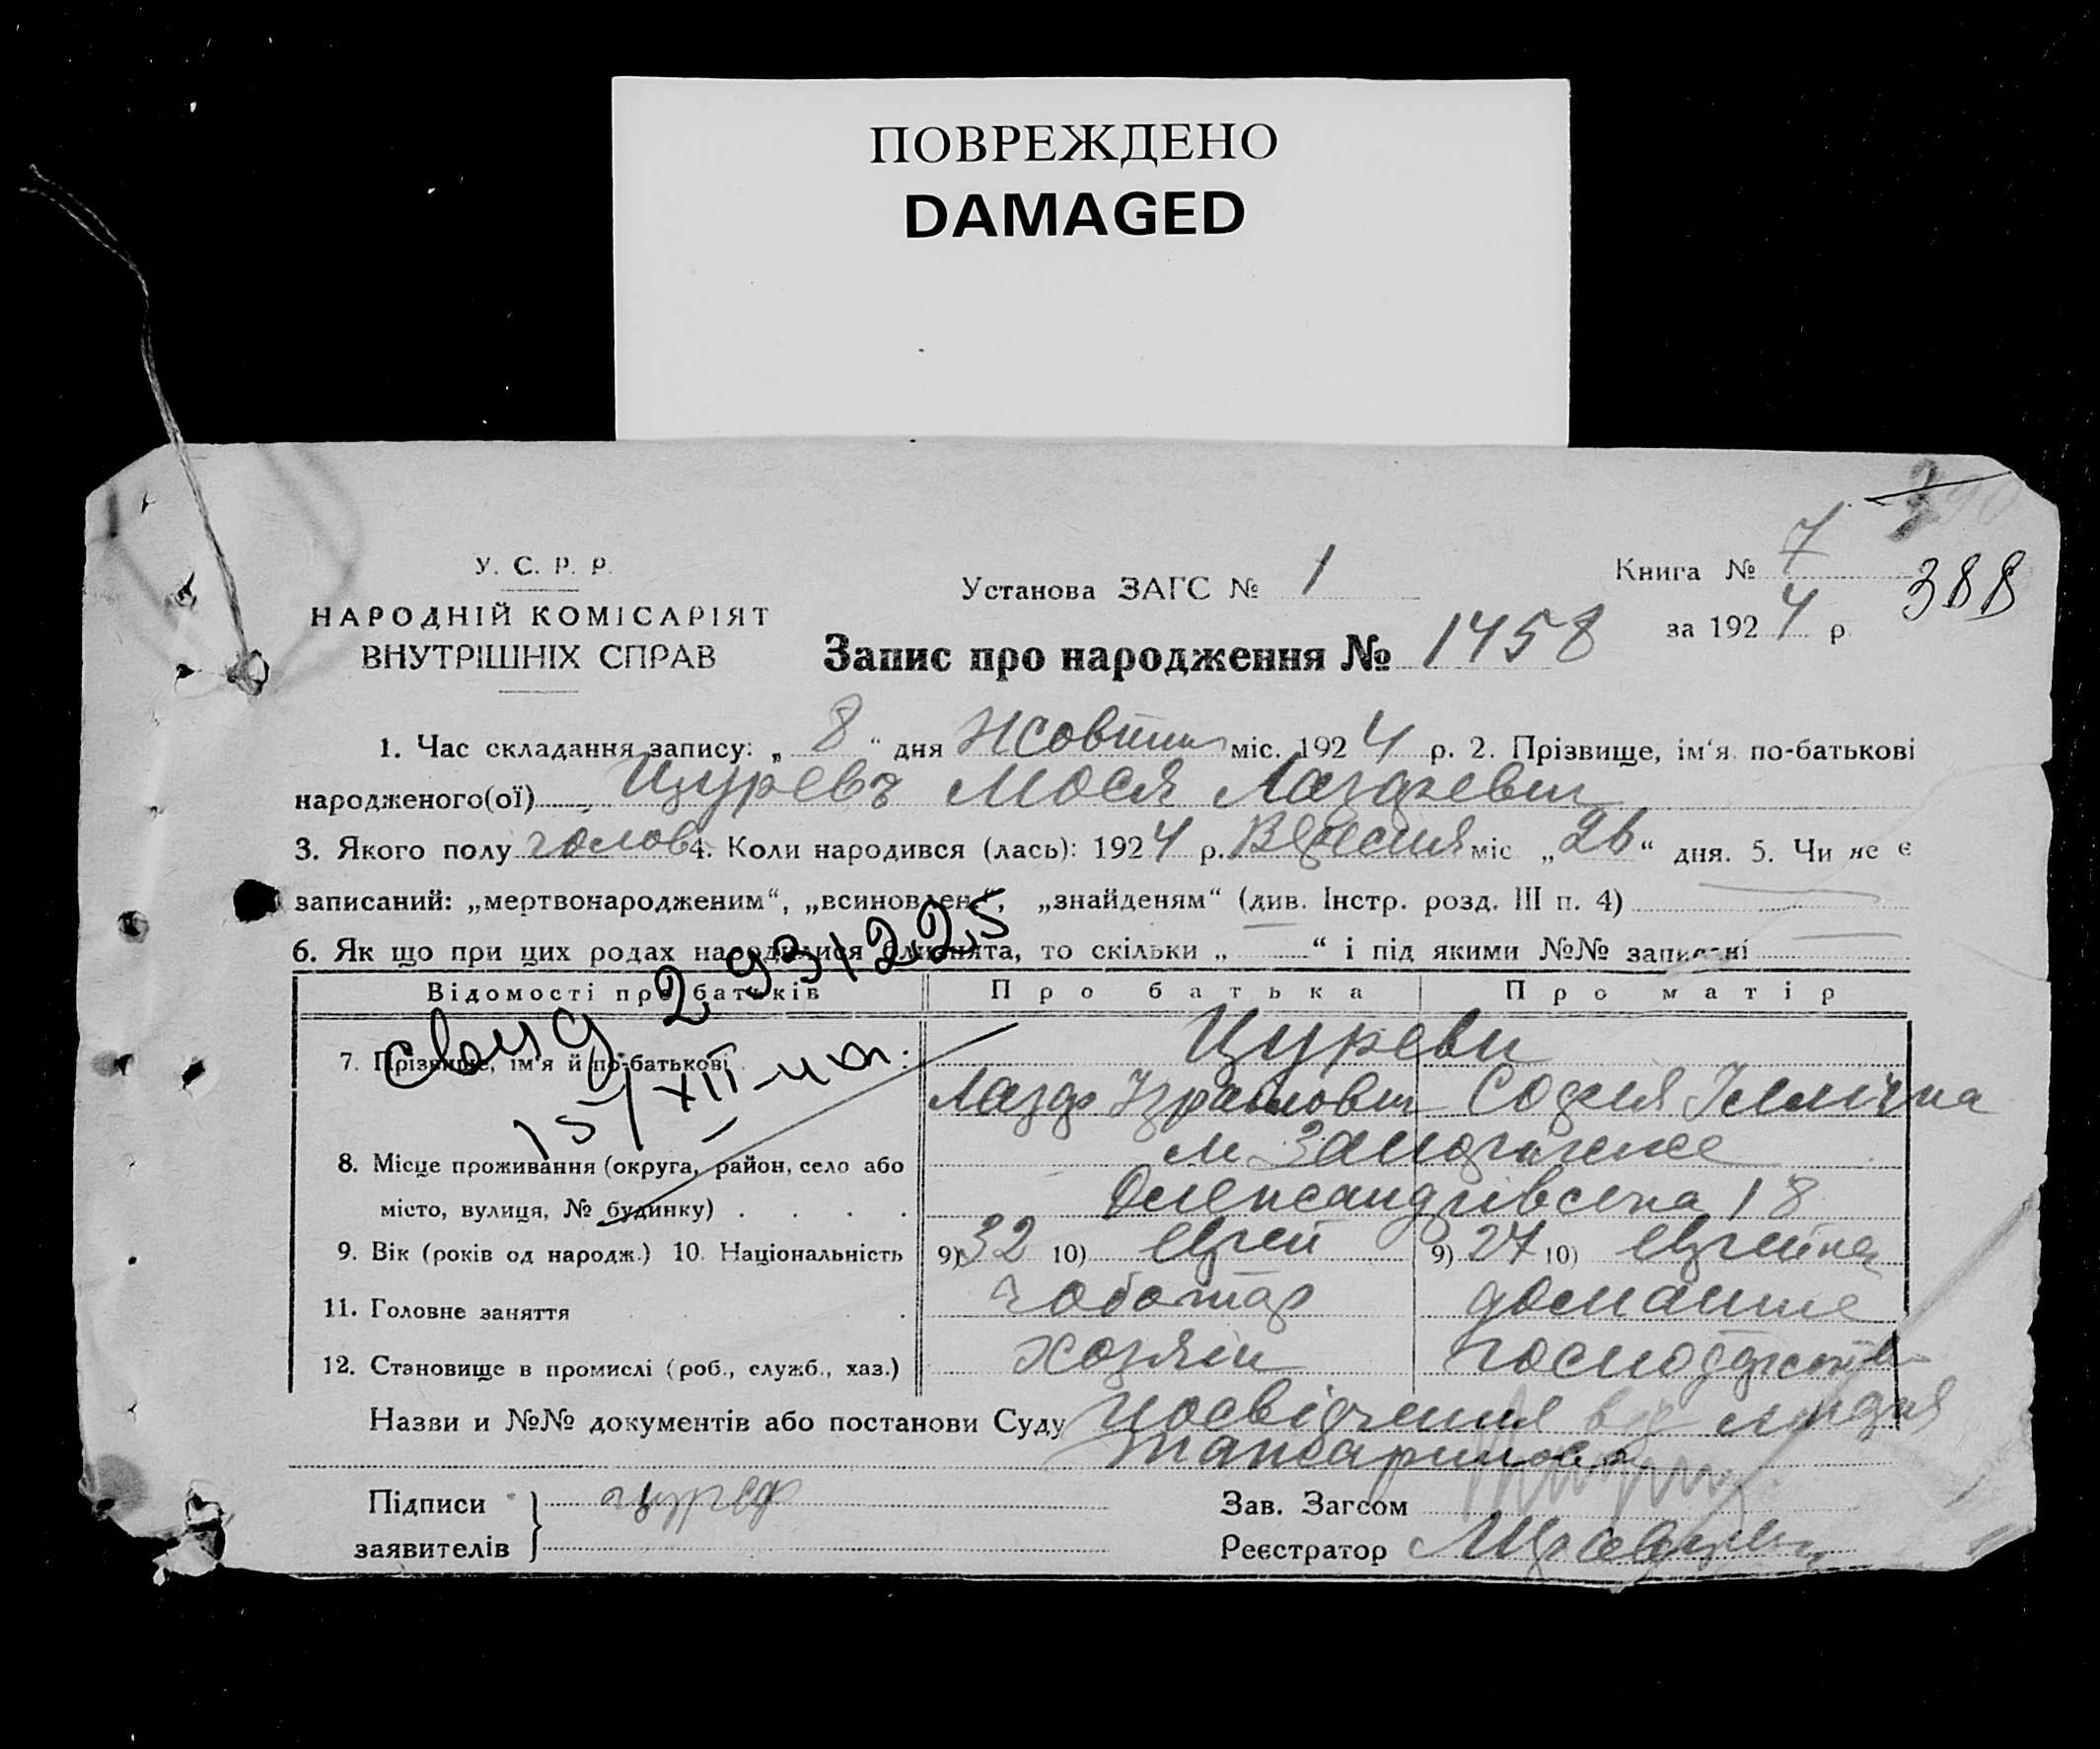 ПОВРЕЖДЕНО
DAMAGED
У. С. Р. Р.
НАРОДНІЙ КОМІСАРІЯТ
ВНУТРІШНІХ СПРАВ
Установа ЗАГС № 1
Книга № 7
388
за 1924 р.
Запис про народження № 1458
1. Час складання запису: „8“ дня Жовтня міс. 1924 р. 2. Прізвище, ім‘я по-батькові
народженого(ої) Цуревъ Мося
3. Якого полу чолов 4. Коли народився (лась): 1924 р. Вересня міс „26“ дня. 5. Чи не є
записаний: „мертвонародженим“, „всиновлен.“, „знайденям“ (див. Інстр. розд. III п. 4)
6. Як що при цих родах народилися близнята, то скільки „ “ і під якими №№ записані
Відомості про батьків Про батька Про матір
7. Прізвище, ім‘я й по-батькові Цуреви
Ізраїлович Софія
8. Місце проживання (округа, район, село або м Запоріжже
місто, вулиця, № будинку) Олександрівська 18
9. Вік (років од народж.) 10. Національність 9) 32 10) Єврей 9) 27 10) Єврейка
11. Головне заняття чоботар домашнє
12. Становище в промислі (роб., служб., хаз.) хозяін господарств
Назви и №№ документів або постанови Суду посвідчення від
Підписи
заявителів
Зав. Загсом
Реєстратор
2 93122,5
15/XII-